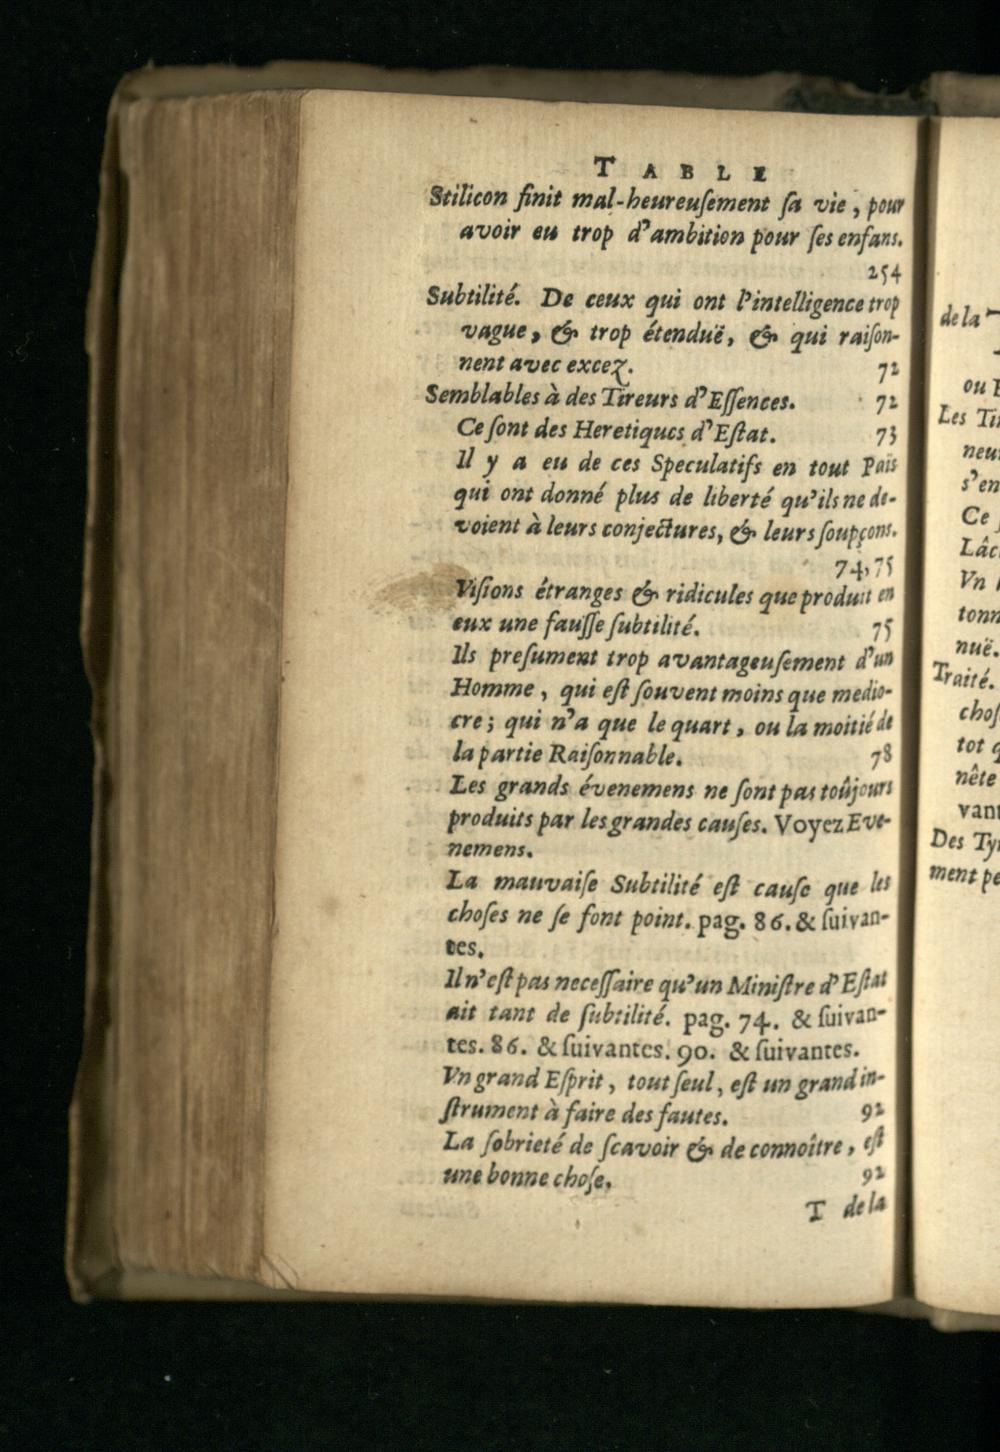 TABLE
Stilicon finit mal-heureuſement ſa vie, pour
avoir eu trop d'ambition pour ſes enfans.
254
Subtilité. De ceux qui ont l'intelligence trop
vague, & trop étenduë, & qui raiſon-
nent avec excez. 72
Semblables à des Tireurs d'Eſſences. 72
Ce ſont des Heretiques d'Eſtat. 73
Il y a eu de ces Speculatifs en tout Païs
qui ont donné plus de liberté qu'ils ne de-
voient à leurs conjectures, & leurs ſoupçons.
74, 75
Viſions étranges & ridicules que produit en
eux une fauſſe ſubtilité. 75
Ils preſument trop avantageuſement d'un
Homme, qui eſt ſouvent moins que medio-
cre; qui n'a que le quart, ou la moitié de
la partie Raiſonnable. 78
Les grands évenemens ne ſont pas toûjours
produits par les grandes cauſes. Voyez Eve-
nemens.
La mauvaiſe Subtilité eſt cauſe que les
choſes ne ſe font point. pag. 86. & ſuivan-
tes.
Il n'eſt pas neceſſaire qu'un Miniſtre d'Eſtat
ait tant de ſubtilité. pag. 74. & ſuivan-
tes. 86. & ſuivantes. 90. & ſuivantes.
Vn grand Eſprit, tout ſeul, eſt un grand in-
ſtrument à faire des fautes. 92
La ſobrieté de ſcavoir & de connoître, eſt
une bonne choſe. 92
T de la
de la T
ou
Les Ti
neu
s'en
Ce
Lâc
Vn
tonn
nuë.
Traité.
choſ
tot q
nête
vant
Des Ty
ment pe